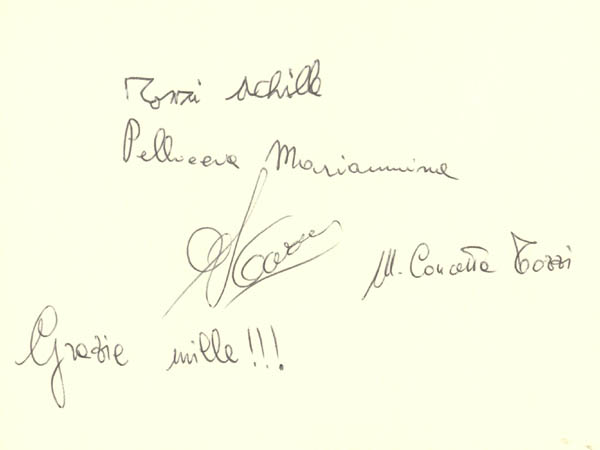 Tozzi Achille
Mariannina
M. Concetta Tozzi
Grazie mille!!!